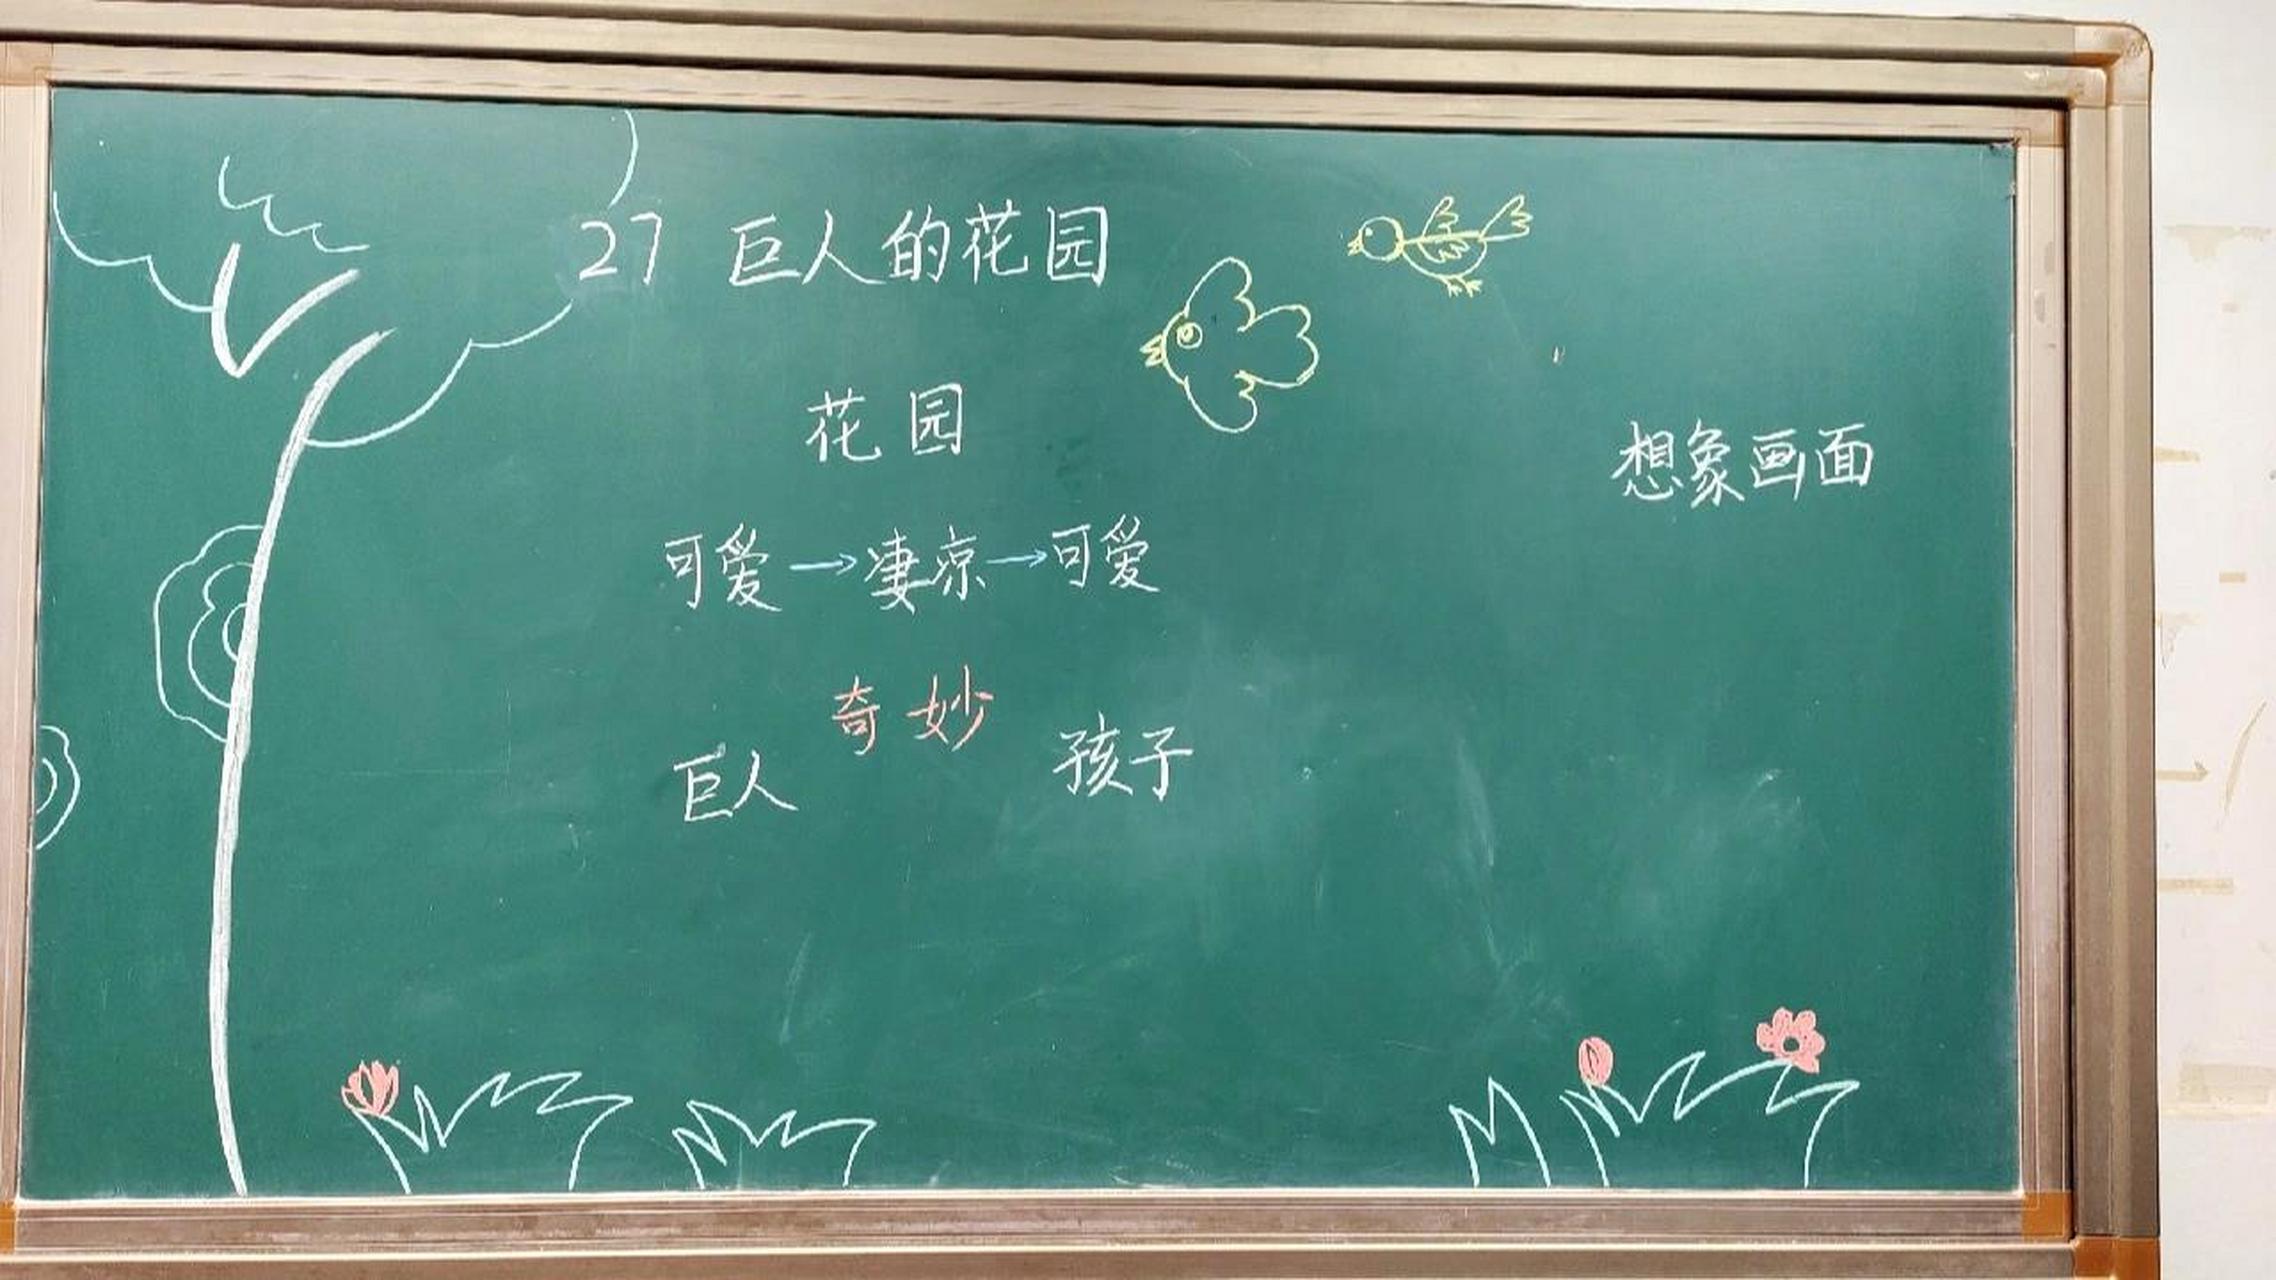 27 巨人的花园
花园
想象画面
可爱→凄凉→可爱
奇妙
巨人 孩子